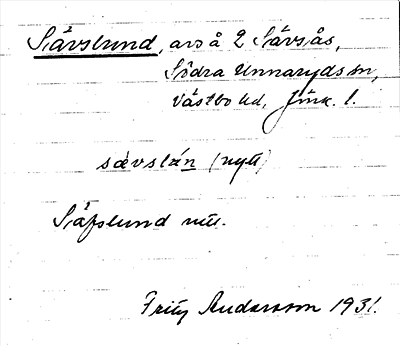 Sävslund, avs å 2 Sävsås,
Södra Unnaryds sn,
Västbo hd, Jönk. l.
sävslán (nytt)
Säfslund
Fritz Andersson 1931.